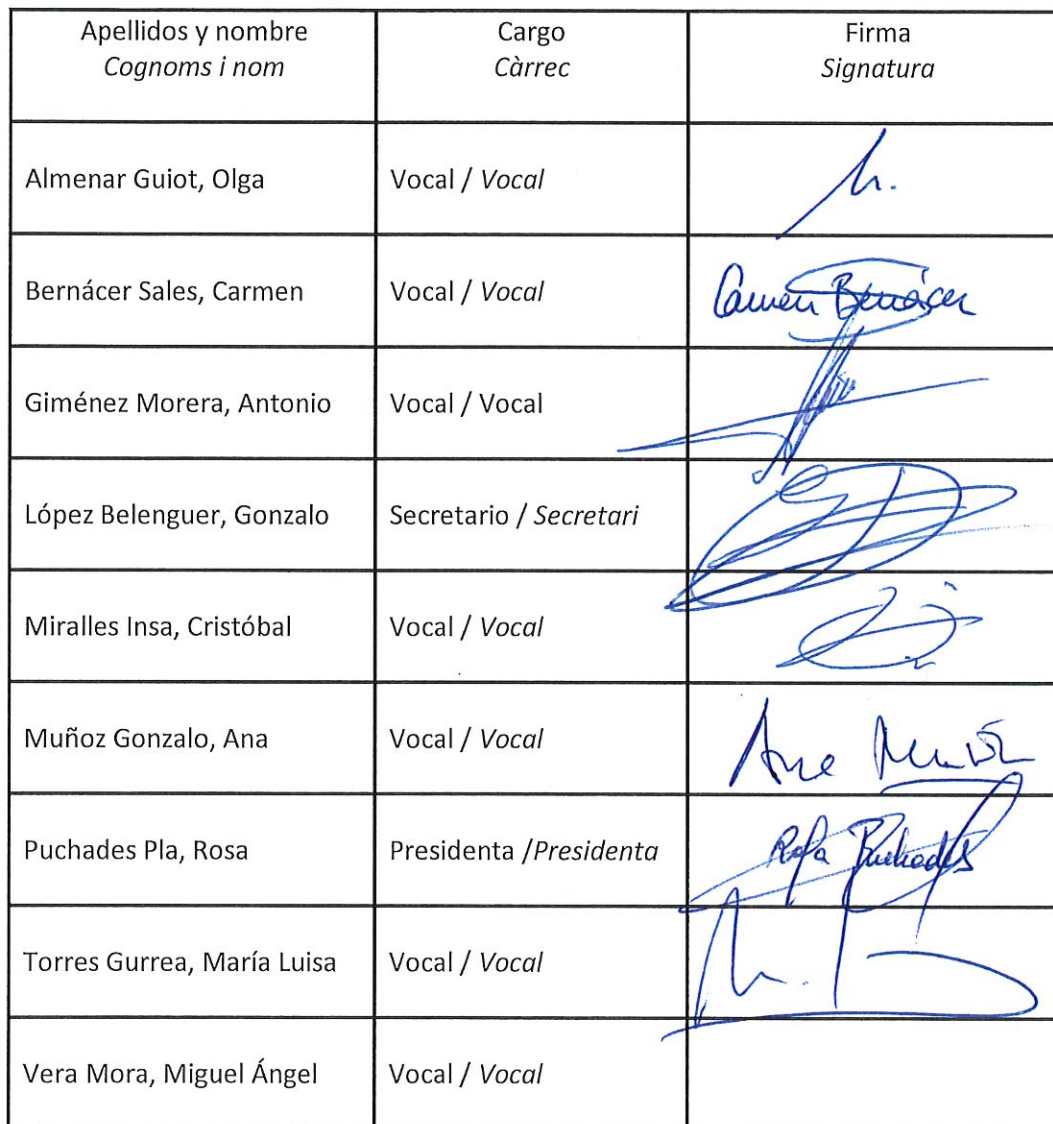 Apellidos y nombre
Cognoms i nom
Cargo
Càrrec
Firma
Signatura
Almenar Guiot, Olga
Vocal / Vocal
Bernácer Sales, Carmen
Vocal / Vocal
Carmen Bernácer
Giménez Morera, Antonio
Vocal / Vocal
López Belenguer, Gonzalo
Secretario / Secretari
Miralles Insa, Cristóbal
Vocal / Vocal
Muñoz Gonzalo, Ana
Vocal / Vocal
Ana Muñoz
Puchades Pla, Rosa
Presidenta /Presidenta
Rosa Puchades
Torres Gurrea, María Luisa
Vocal / Vocal
Vera Mora, Miguel Ángel
Vocal / Vocal